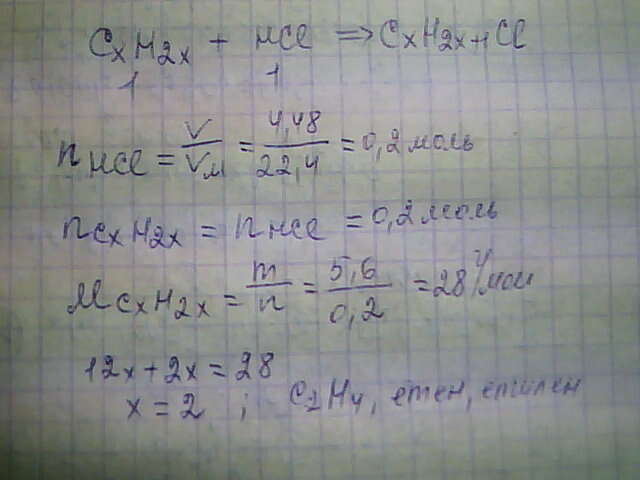 CxH2x + HCl => CxH2x+1Cl
1 1
nHCl = V/VM = 4,48/22,4 = 0,2 моль
nCxH2x = nHCl = 0,2 моль
MCxH2x = m/n = 5,6/0,2 = 28 г/мол
12x + 2x = 28
x = 2 ; C2H4, етен, етилен